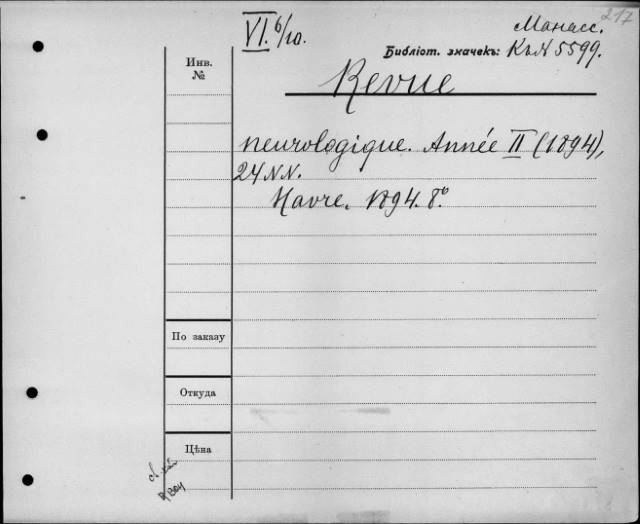 217
VI. 6/10.
Манасс.
Библіот. значекъ: Къ N 5599.
Инв.
№
Revue
neurologique. Année II (1894),
24 N.N.
Havre. 1894. 8º.
По заказу
Откуда
Цѣна